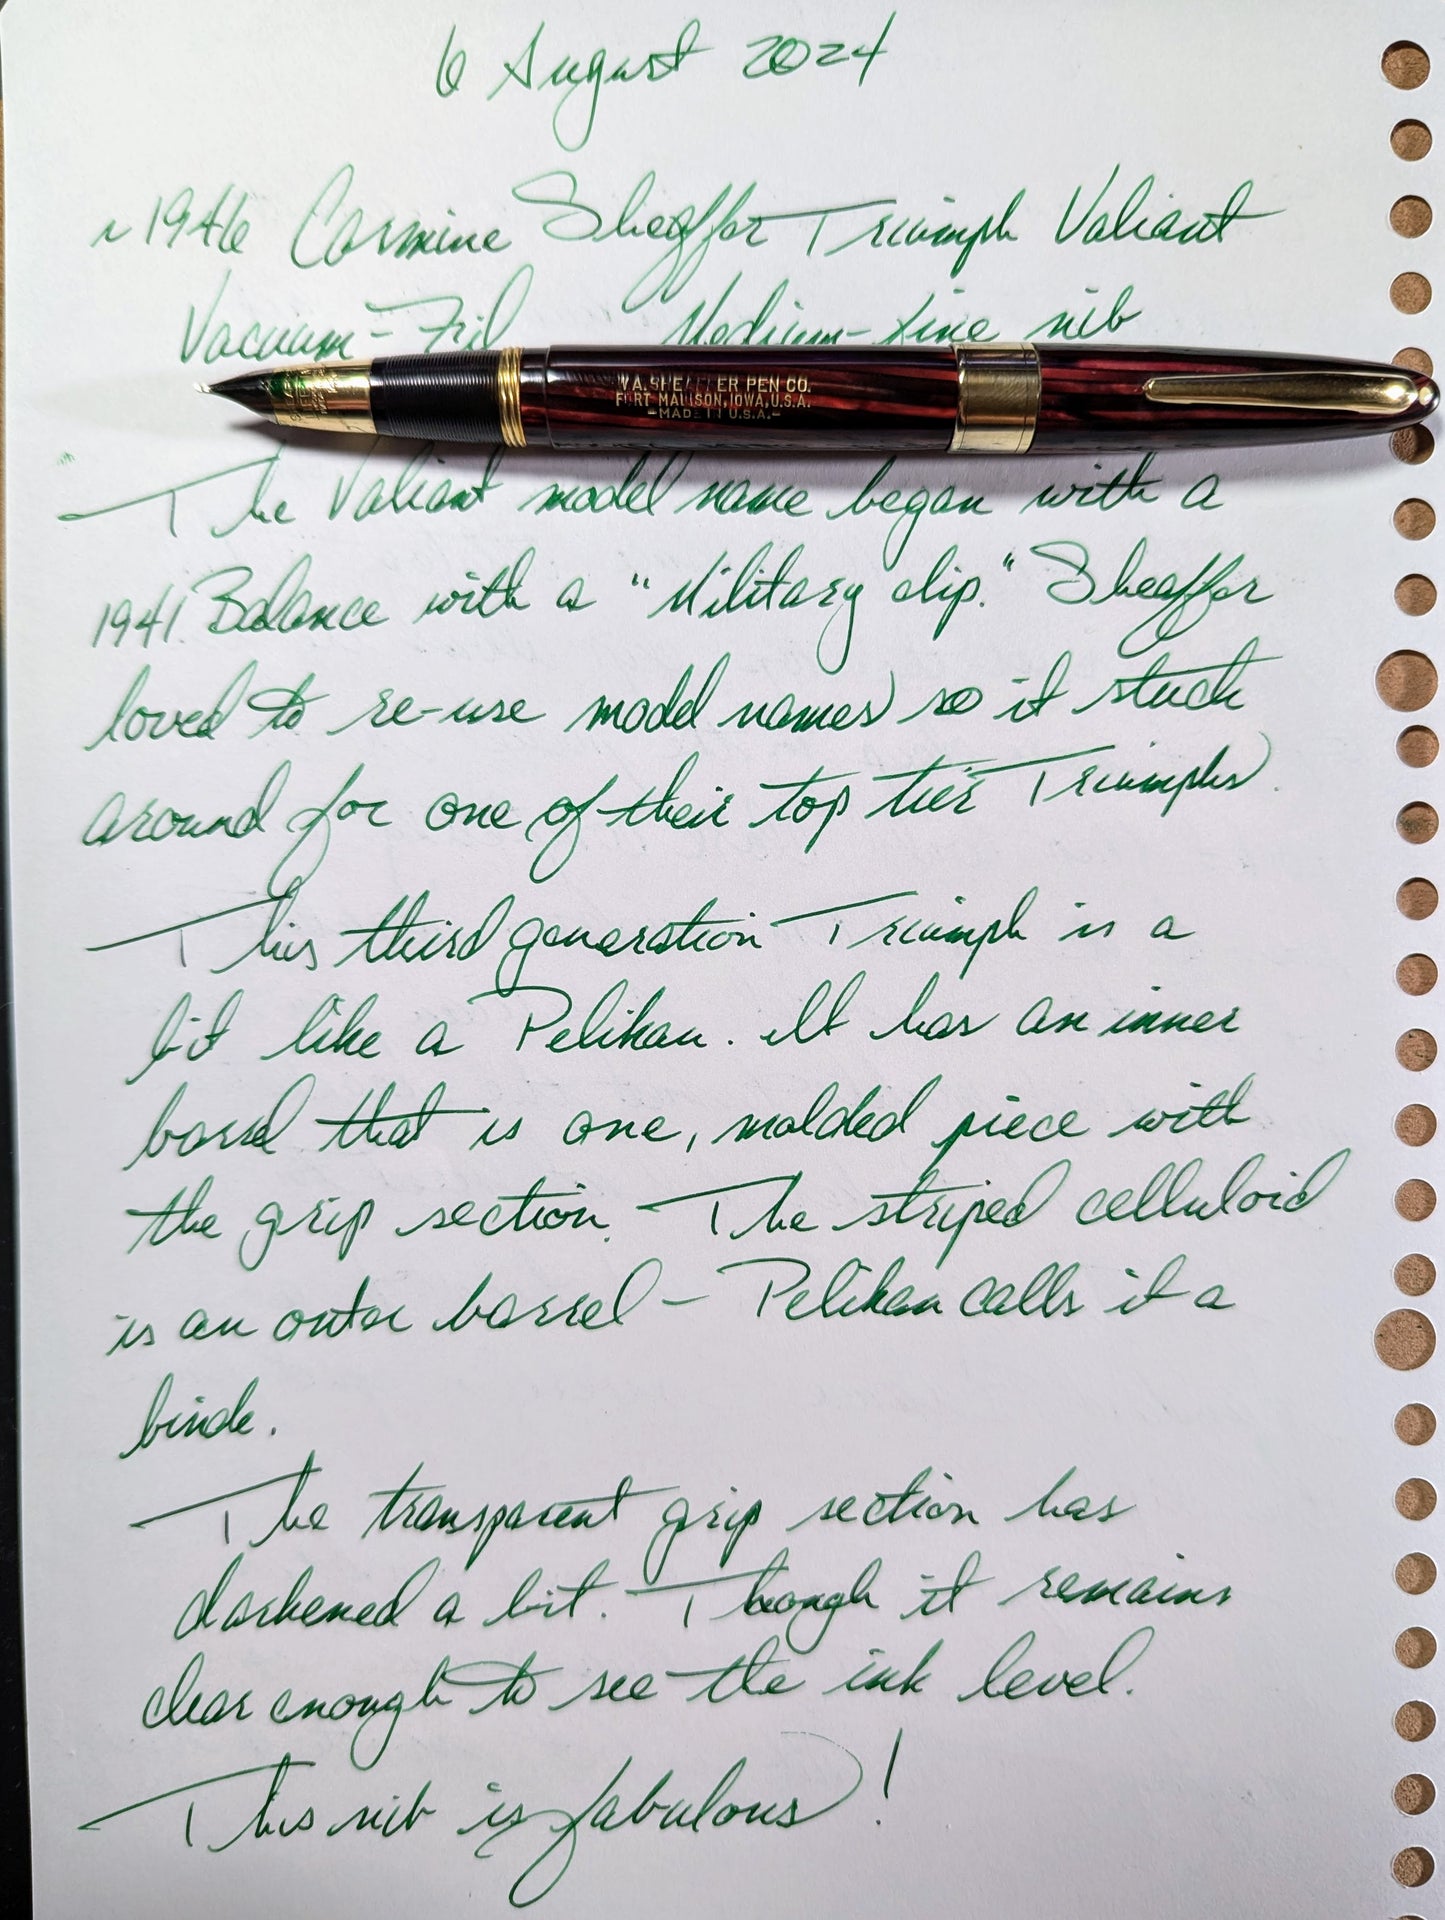 6 August 2024
~1946 Carmine Sheaffer Triumph Valiant
Vacuum-Fil Medium-fine nib
W.A. SHEAFFER PEN CO.
FORT MADISON, IOWA, U.S.A.
-MADE IN U.S.A.-
The Valiant model name began with a
1941 Balance with a "Military clip." Sheaffer
loved to re-use model names so it stuck
around for one of their top tier Triumphs.
This third generation Triumph is a
bit like a Pelikan. It has an inner
barrel that is one, molded piece with
the grip section. The striped celluloid
is an outer barrel - Pelikan calls it a
binde.
The transparent grip section has
darkened a bit. Though it remains
clear enough to see the ink level.
This nib is fabulous!